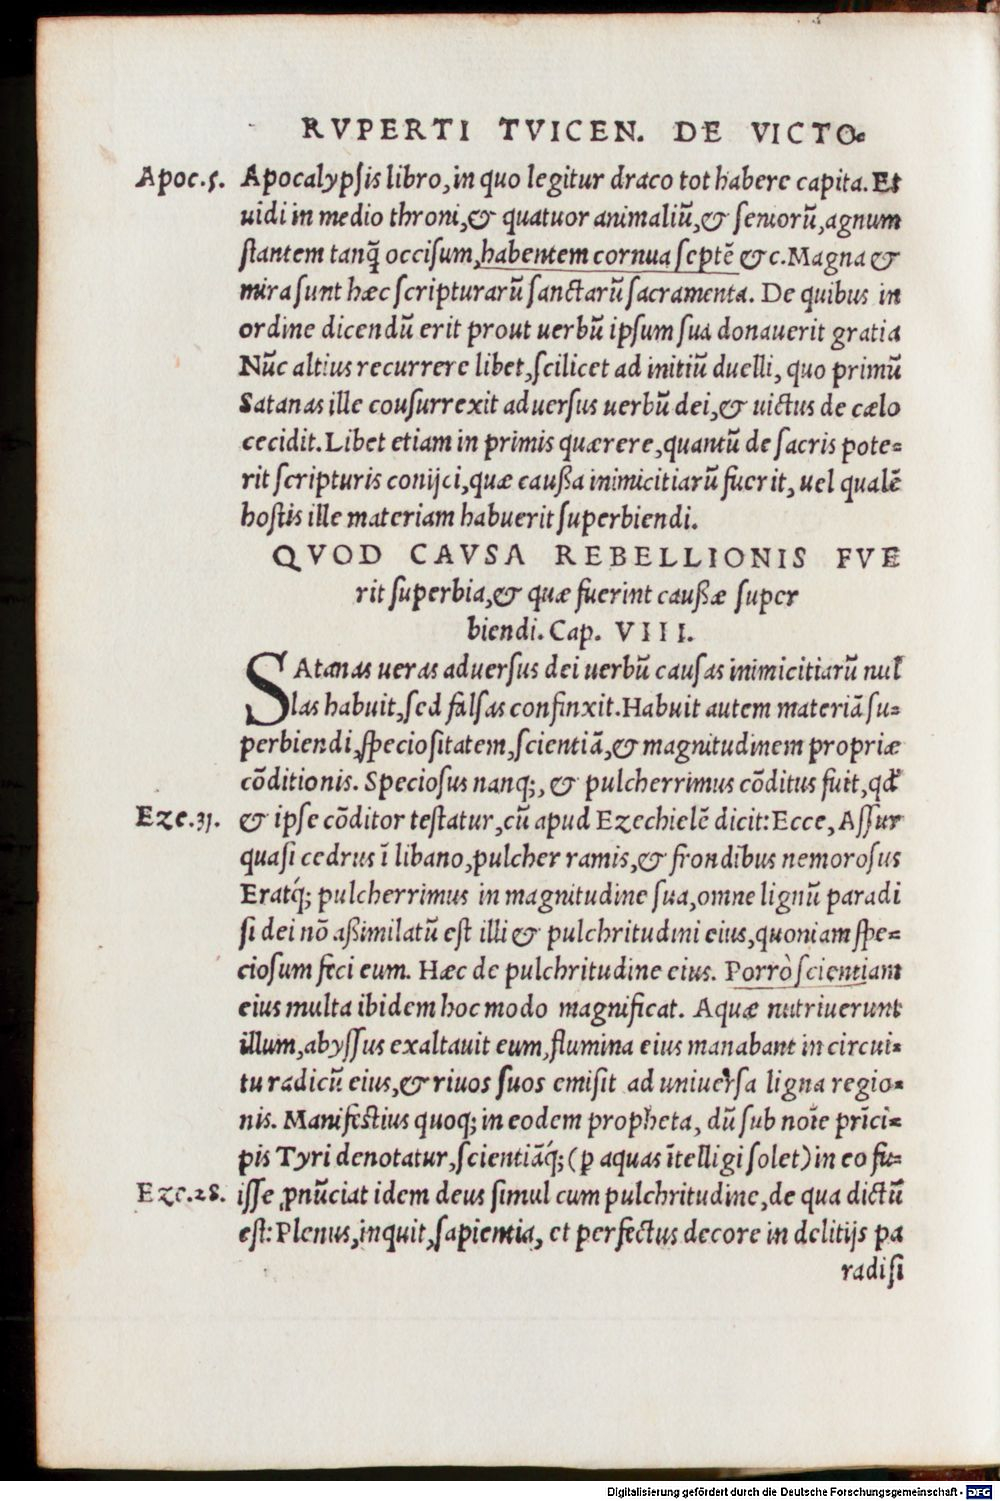 RVPERTI TVICEN. DE VICTO-
Apoc.5. Apocalypsis libro, in quo legitur draco tot habere capita. Et
uidi in medio throni, & quatuor animaliũ, & senioru᷉, agnum
stantem tanq̃ occisum, habentem cornua septẽ &c. Magna &
mira sunt hæc scripturarũ sanctarũ sacramenta. De quibus in
ordine dicendũ erit prout uerbũ ipsum sua donauerit gratia
Nũc altius recurrere libet, scilicet ad initiũ duelli, quo primũ
Satanas ille cousurrexit aduersus uerbũ dei, & uictus de cælo
cecidit. Libet etiam in primis quærere, quantũ de sacris pote-
rit scripturis conijci, quæ caußa inimicitiarũ fuerit, uel qualẽ
hostis ille materiam habuerit superbiendi.
QVOD CAVSA REBELLIONIS FVE
rit superbia, & quæ fuerint caußæ super
biendi. Cap. VIII.
SAtanas ueras aduersus dei uerbũ causas inimicitiarũ nul
las habuit, sed falsas confinxit. Habuit autem materiã su-
perbiendi, speciositatem, scientiã, & magnitudinem propriæ
cõditionis. Speciosus nanq;, & pulcherrimus cõditus fuit, qđ
Eze.31. & ipse cõditor testatur, cũ apud Ezechielẽ dicit: Ecce, Assur
quasi cedrus ĩ libano, pulcher ramis, & frondibus nemorosus
Eratq́; pulcherrimus in magnitudine sua, omne lignũ paradi
si dei nõ aßimilatũ est illi & pulchritudini eius, quoniam spe-
ciosum feci eum. Hæc de pulchritudine eius. Porrò scientiam
eius multa ibidem hoc modo magnificat. Aquæ nutriuerunt
illum, abyssus exaltauit eum, flumina eius manabant in circui-
tu radicũ eius, & riuos suos emisit ad uniuersa ligna regio-
nis. Manifestius quoq; in eodem propheta, dũ sub noĩe prĩci-
pis Tyri denotatur, scientiãq́; (ꝑ aquas ĩtelligi solet) in eo fu-
Eze.28. isse ꝓnũciat idem deus simul cum pulchritudine, de qua dictũ
est: Plenus, inquit, sapientia, et perfectus decore in delitijs pa
radisi
Digitalisierung gefördert durch die Deutsche Forschungsgemeinschaft - DFG